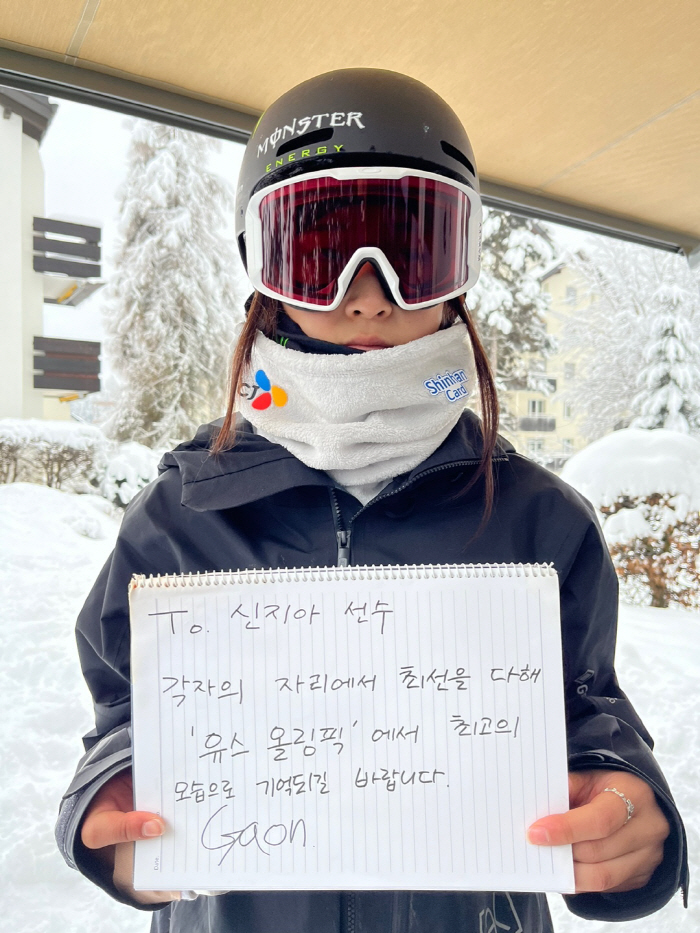 MONSTER
ENERGY
CJ
Shinhan
Card
To. 신지아 선수
각자의 자리에서 최선을 다해
'유스 올림픽' 에서 최고의
모습으로 기억되길 바랍니다.
Gaon
Date